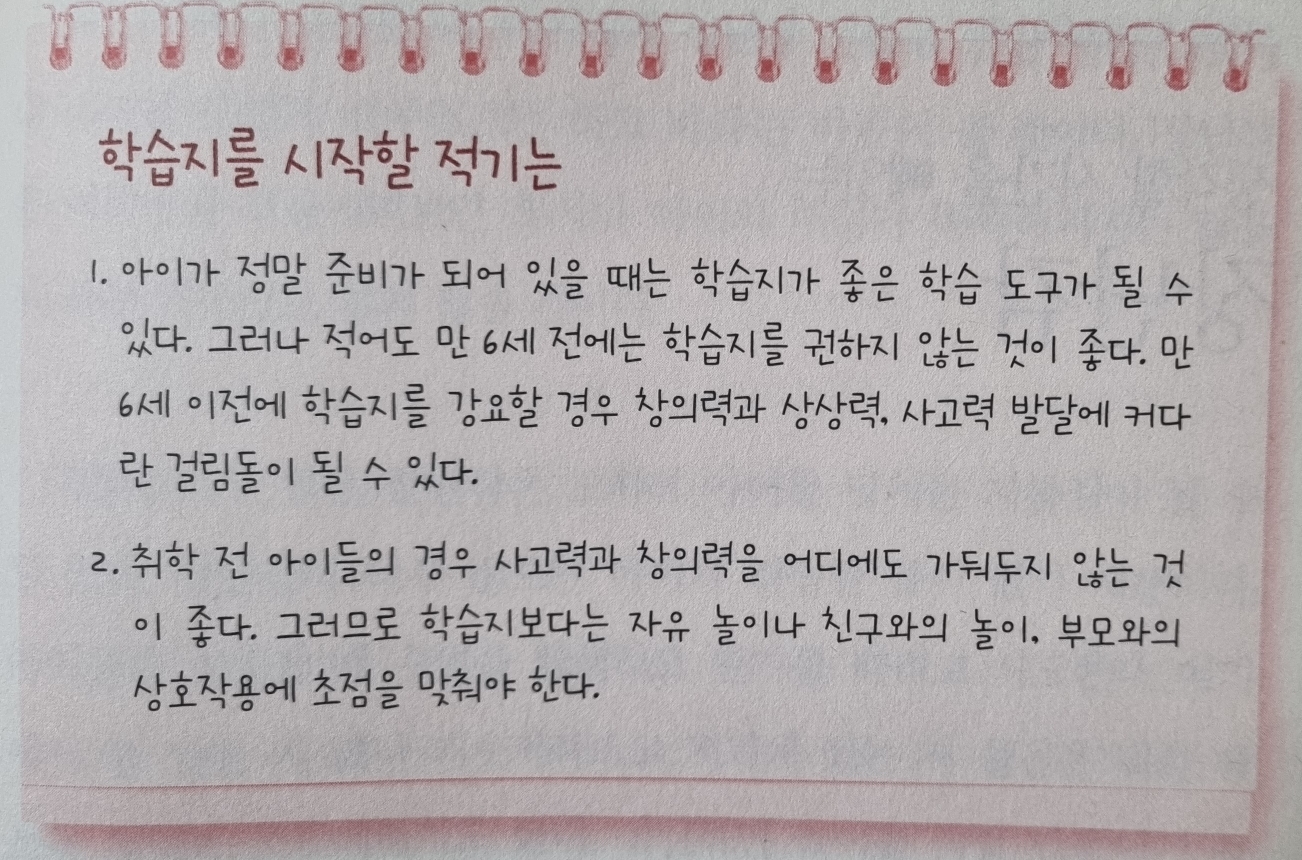 학습지를 시작할 적기는
1. 아이가 정말 준비가 되어 있을 때는 학습지가 좋은 학습 도구가 될 수
있다. 그러나 적어도 만 6세 전에는 학습지를 권하지 않는 것이 좋다. 만
6세 이전에 학습지를 강요할 경우 창의력과 상상력, 사고력 발달에 커다
란 걸림돌이 될 수 있다.
2. 취학 전 아이들의 경우 사고력과 창의력을 어디에도 가둬두지 않는 것
이 좋다. 그러므로 학습지보다는 자유 놀이나 친구와의 놀이, 부모와의
상호작용에 초점을 맞춰야 한다.